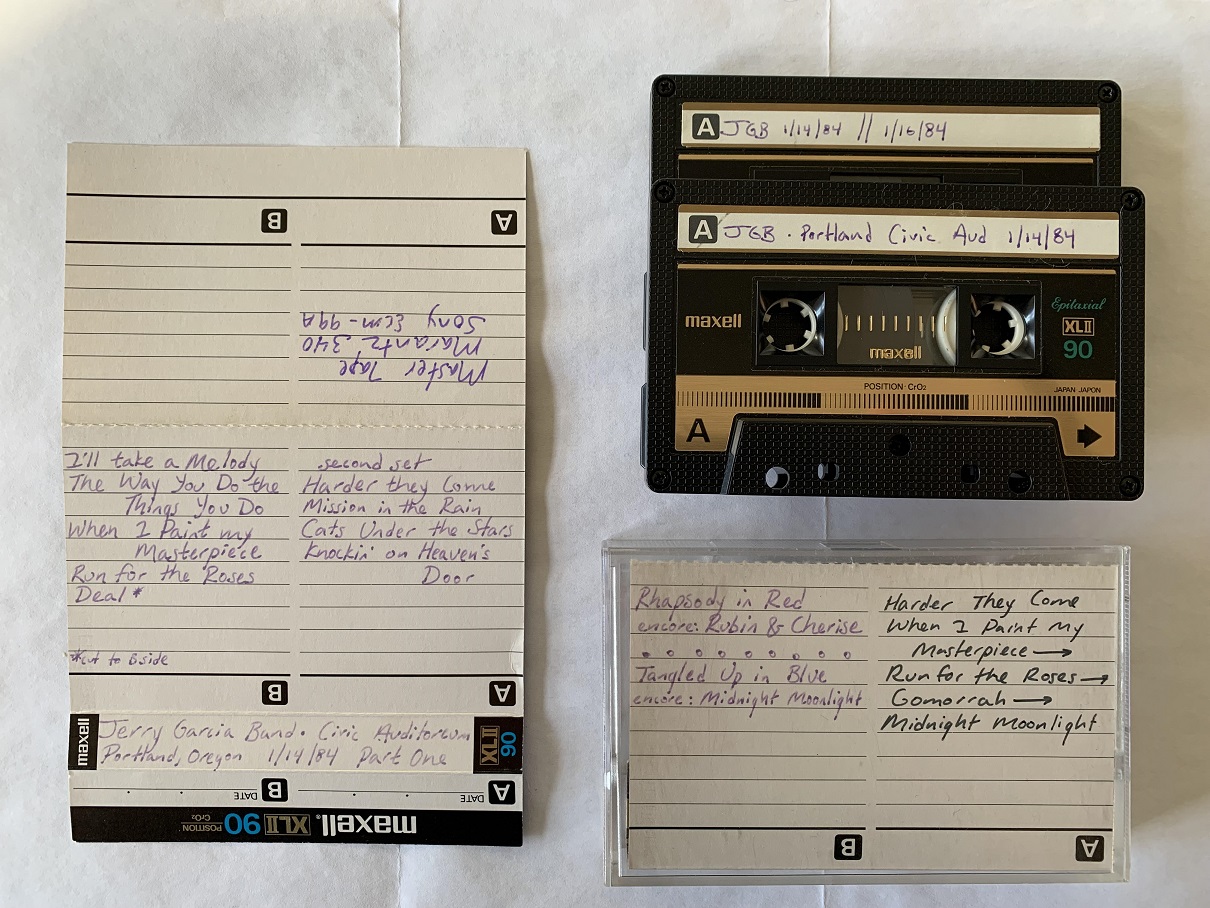 B A
Master Tape
Marantz 340
Sony Ecm-99A
I'll take a Melody
The Way You Do the
Things You Do
When I Paint my
Masterpiece
Run for the Roses
Deal *
*cut to Bside
B
second set
Harder they Come
Mission in the Rain
Cats Under the Stars
Knockin' on Heaven's
Door
A
maxell
Jerry Garcia Band • Civic Auditorium
Portland, Oregon 1/14/84 Part One
XLII 90
A DATE
B DATE
maxell® XLII 90 POSITION CrO2
A JGB 1/14/84 // 1/16/84
A JGB • Portland Civic Aud 1/14/84
maxell
maxell
Epitaxial
XLII
90
POSITION·CrO2
JAPAN·JAPON
A
Rhapsody in Red
encore: Rubin & Cherise
Tangled Up in Blue
encore: Midnight Moonlight
B
Harder They Come
When I Paint My
Masterpiece →
Run for the Roses →
Gomorrah →
Midnight Moonlight
A